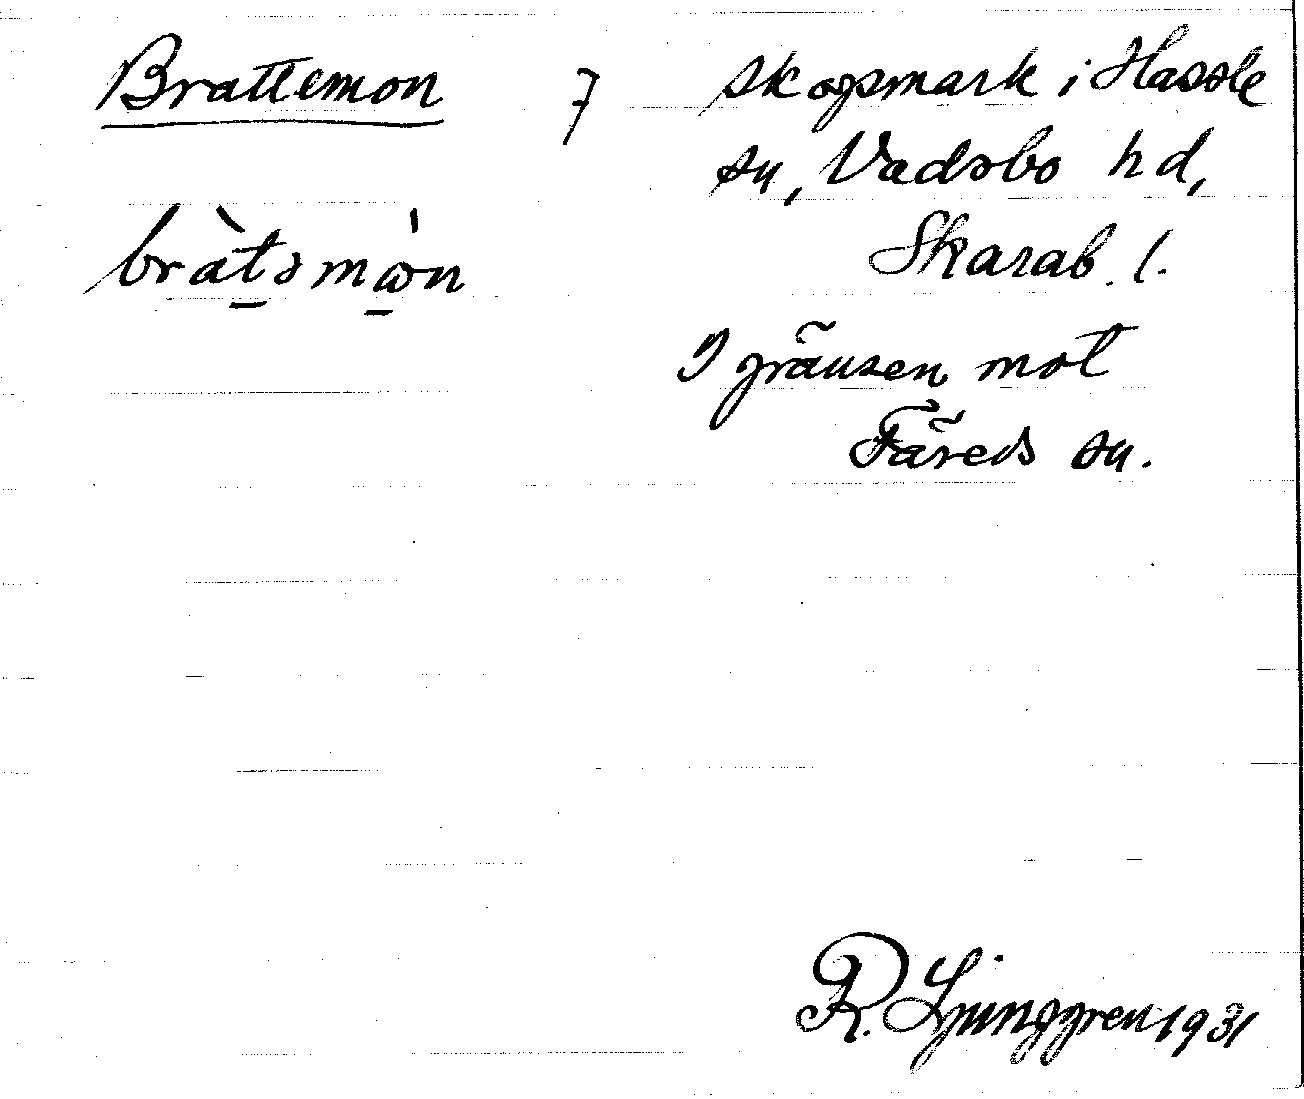 Brattemon 7 skogsmark i Hassle
sn, Vadsbo hd,
bràtəmω̇n Skarab. l.
I gränsen mot
Färeds sn.
R. Ljunggren 1931